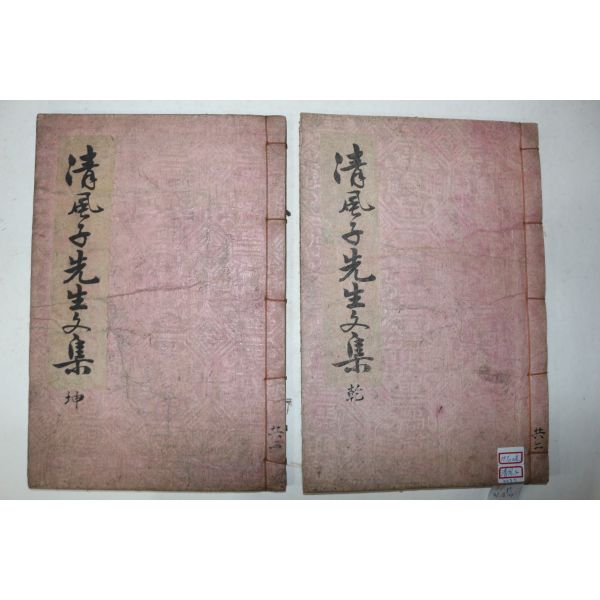 清風子先生文集
乾
共二
清風子先生文集
坤
共二